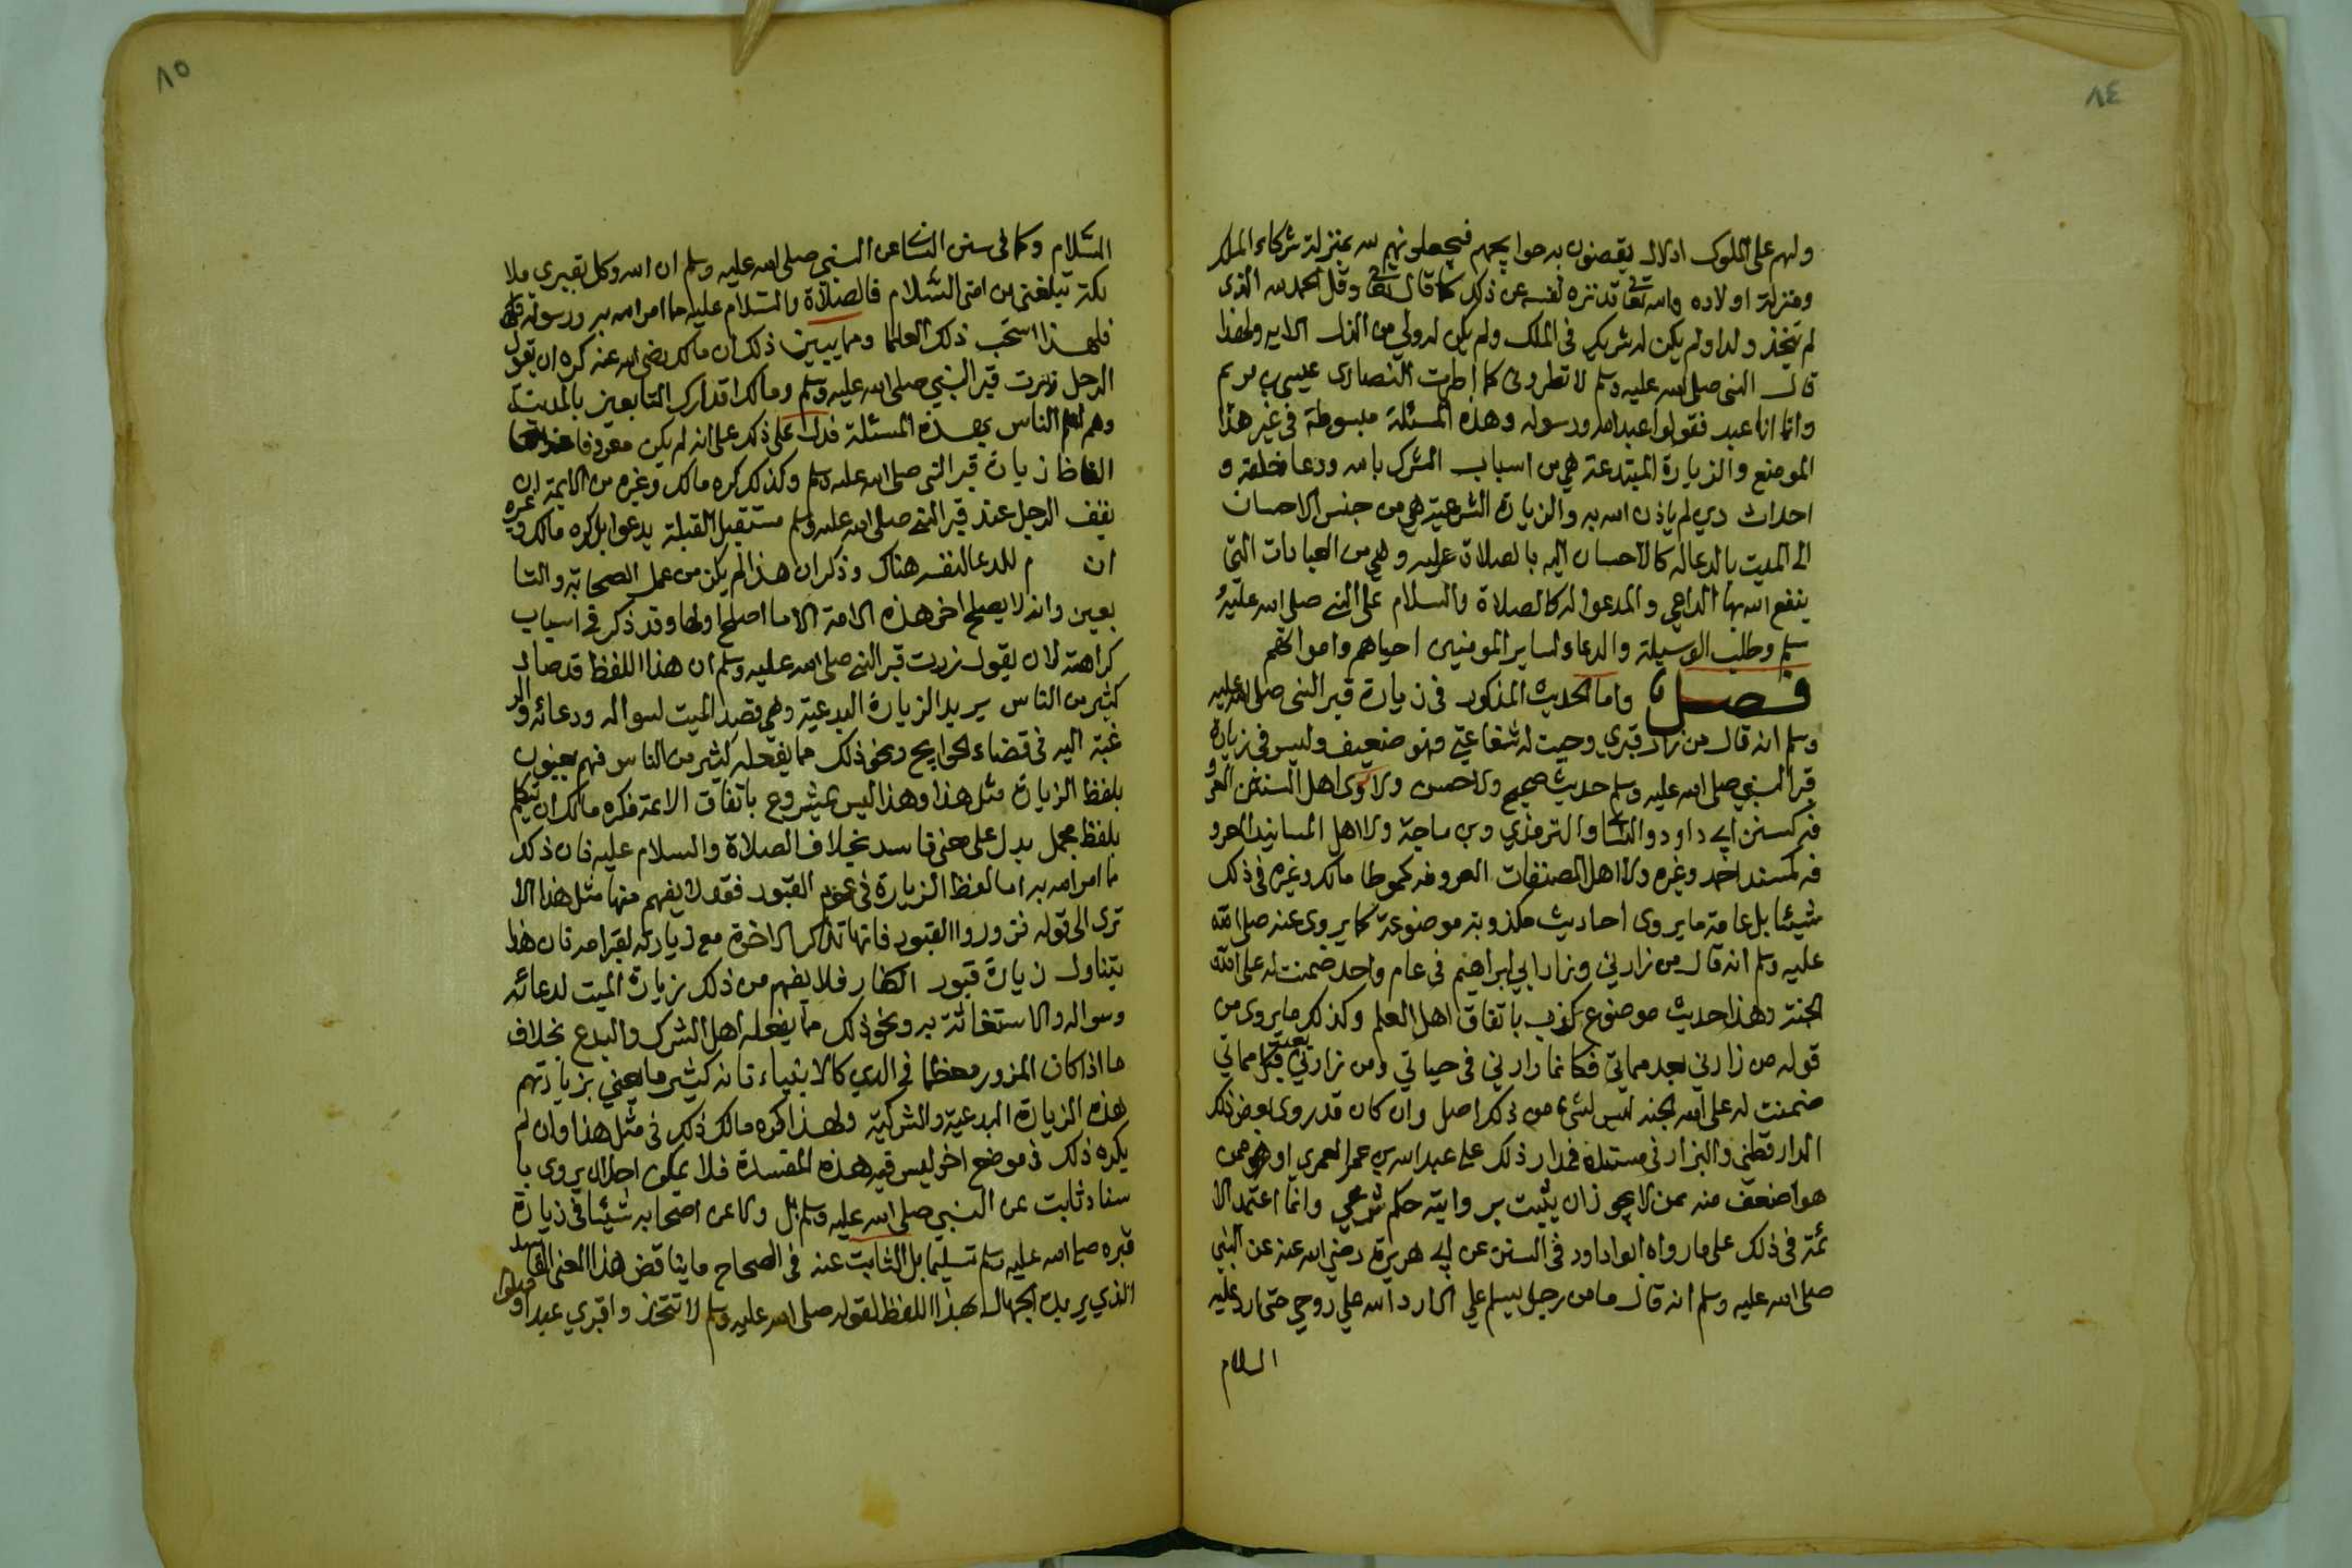 ٨٤
ولهم على الملوك ادلال يقضون به حوايجهم فيجعلونهم لله بمنزلة شركاء الملك
ومنزلة اولاده والله تعالى قد نزه نفسه عن ذلك كما قال تعالى وقل الحمد لله الذى
لم يتخذ ولدا ولم يكن له شريك فى الملك ولم يكن له ولي من الذل الايه ولهذا
قال النبى صلى الله عليه وسلم لا تطرونى كما اطرت النصارى عيسى بن مريم
وانما انا عبد فقولوا عبد الله ورسوله وهذه المسئلة مبسوطة فى غير هذا
الموضع والزيارة المبتدعة هي من اسباب الشرك بالله ودعا خلقه و
احداث دين لم ياذن الله به والزيارة الشرعية هي من جنس الاحسان
الى الميت بالدعا له كالاحسان اليه بالصلاة عليه وهي من العبادات التى
ينفع الله بها الداعي والمدعو له كالصلاة والسلام على النبى صلى الله عليه و
سلم وطلب الوسيلة والدعاء لساير المومنين احياهم وامواتهم
فصل واما الحديث المذكور فى زيارة قبر النبى صلى الله عليه
وسلم انه قال من زار قبري وجبت له شفاعتي فهو ضعيف وليس فى زيارة
قبر النبي صلى الله عليه وسلم حديث صحيح ولا حسن ولا روى اهل السنن المعرو
فه كسنن ابي داود والنسا والترمذي وبن ماجة ولا اهل المسانيد المعرو
فه كمسند احمد وغيره ولا اهل المصنفات المعروفه كموطا مالك وغيره فى ذلك
شيئا بل عامة ما يروى احاديث مكذوبة موضوعة كما يروى عنه صلى الله
عليه وسلم انه قال من زارني وزار ابي ابراهيم فى عام واحد ضمنت له على الله
الجنة وهذا حديث موضوع كذب باتفاق اهل العلم وكذلك ما يروى من
قوله من زارني بعد مماتي فكانما زارني فى حياتي ومن زارني بعد مماتي
ضمنت له على الله الجنة ليس لشيء من ذلك اصل وان كان قد روى بعض ذلك
الدارقطني والبزار فى مسنده فمدار ذلك على عبد الله بن عمر العمري او هو ممن
هو اضعف منه ممن لا يجوز ان يثبت بروايته حكم شرعي وانما اعتمد الا
ئمة فى ذلك على ما رواه ابوا داود فى السنن عن ابي هريرة رضي الله عنه عن النبي
صلى الله عليه وسلم انه قال ما من رجل يسلم علي الا رد الله علي روحي حتى ارد عليه
السلام
٨٥
السلام وكما فى سنن النسا عن النبي صلى الله عليه وسلم ان الله وكل بقبري ملا
يكة تبلغني من امتى السلام فالصلاة والسلام عليه مما امر الله به ورسوله
فلهذا استحب ذلك العلما ومما يبين ذلك ان مالك رضى الله عنه كره ان يقول
الرجل زرت قبر النبي صلى الله عليه وسلم ومالك قد ادرك التابعين بالمدينة
وهم اعلم الناس بهذه المسئلة فدل على ذلك على انه لم يكن معروفا
الفاظ زيارة قبر النبى صلى الله عليه وسلم وكذلك كره مالك وغيره من الايمة ان
يقف الرجل عند قبر النبى صلى الله عليه وسلم مستقبل القبلة يدعوا بل كره مالك وغيره
ان م للدعا لنفسه هناك وذكر ان هذا لم يكن من عمل الصحابة والتا
بعين وانه لا يصلح اخر هذه الامة الا ما اصلح اولها وقد ذكر فى اسباب
كراهته لان يقول زرت قبر النبى صلى الله عليه وسلم ان هذا اللفظ قد صار
كثير من الناس يريد الزيارة البدعية وهي قصد الميت لسواله ودعائه والر
غبة اليه فى قضاء الحوايج ونحو ذلك مما يفعله كثير من الناس فهم يعنون
بلفظ الزيارة مثل هذا وهذا ليس بمشروع باتفاق الائمة فكره مالك ان يتكلم
بلفظ مجمل يدل على معنى فاسد بخلاف الصلاة والسلام عليه فان ذلك
مما امر الله به اما لفظ الزيارة فى عموم القبور فقد لا يفهم منها مثل هذا الا
ترى الى قوله فزوروا القبور فانها تذكر الاخرة مع زيارته لقبر امه فان هذا
يتناول زيارة قبور الكفار فلا يفهم من ذلك زيارة الميت لدعائه
وسواله والاستغاثة به ونحو ذلك مما يفعله اهل الشرك والبدع بخلاف
ما اذا كان المزور معظما فى الدين كالانبياء فانه كثير ما يعني بزيارتهم
هذه الزيارة البدعية والشركية ولهذا كره مالك ذلك فى مثل هذا وان لم
يكره ذلك فى موضع اخر ليس فيه هذه المفسدة فلا يمكن احدا ان يروى با
سناد ثابت عن النبي صلى الله عليه وسلم بل ولا عن اصحابه شيئا فى زيارة
قبره صلى الله عليه وسلم تسليما بل الثابت عنه فى الصحاح ما يناقض هذا المعنى الفاسد
الذي يريده الجهال بهذا اللفظ لقوله صلى الله عليه وسلم لا تتخذوا قبري عيدا وصلوا